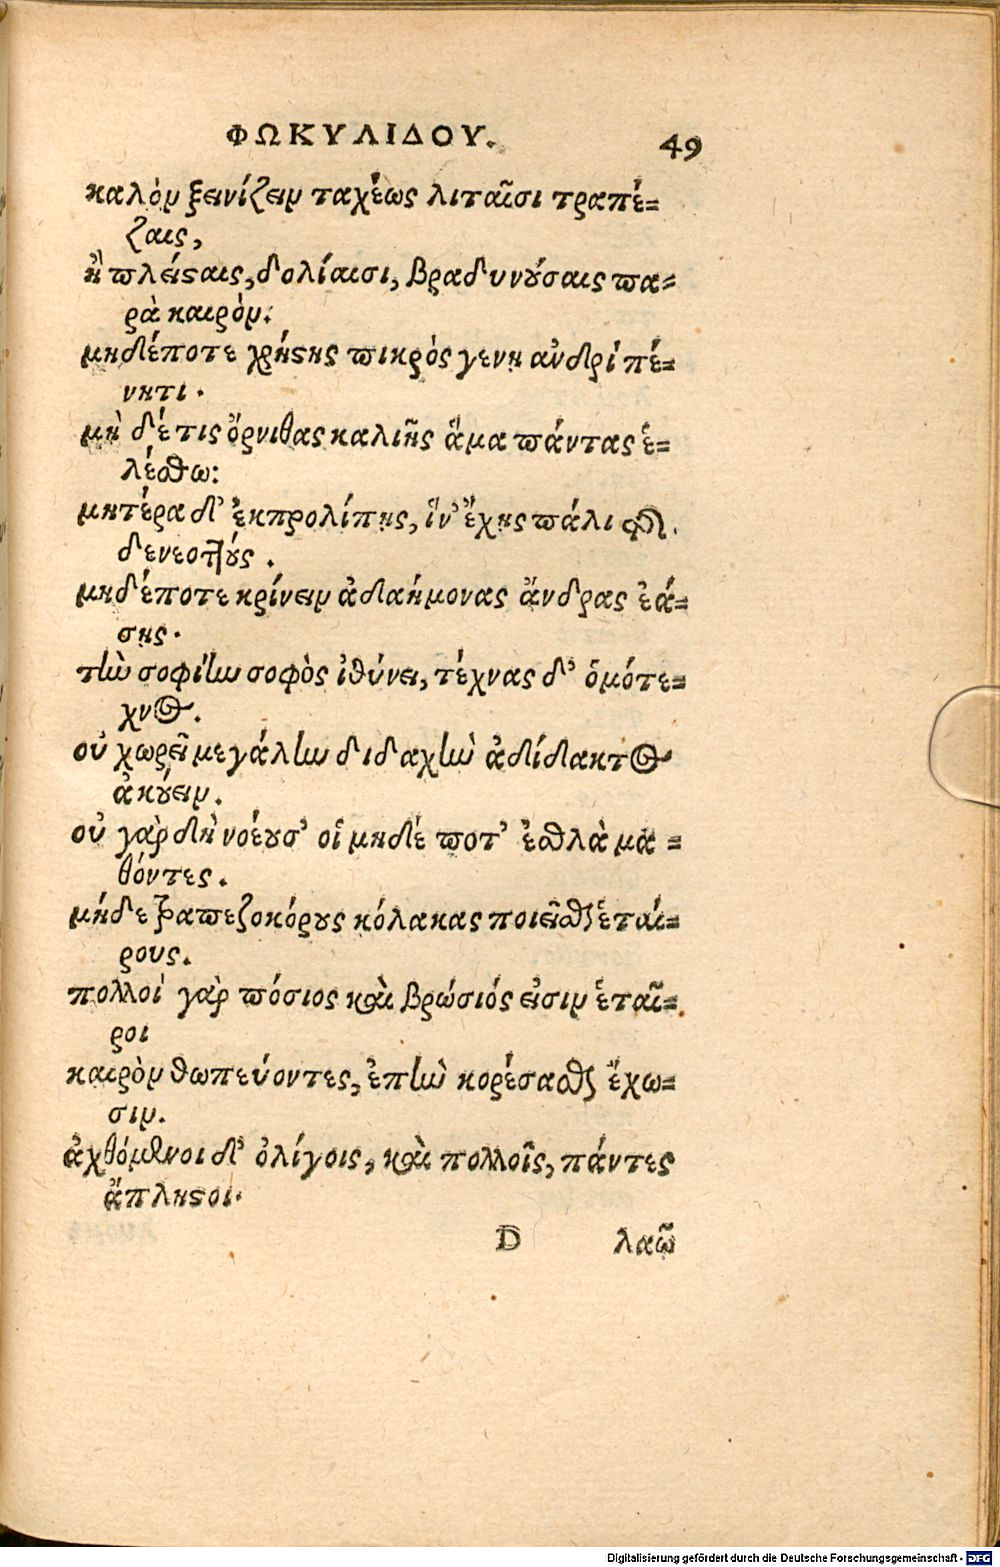 ΦΩΚΥΛΙΔΟΥ. 49
καλὸν ξεινίζειν ταχέως λιταῖσι τραπέ=
ζαις,
ἢ πλείσαις, δολίαισι, βραδυνούσαις πα=
ρὰ καιρόν.
μηδέποτε χρήσης πικρὸς γένῃ ἀνδρὶ πέ=
νητι.
μὴ δέ τις ὄρνιθας καλιῆς ἅμα πάντας ἑ=
λέσθω:
μητέρα δ' ἐκπρολίπῃς, ἵν' ἔχῃς πάλι
δε νεοττούς.
μηδέποτε κρίνειν ἀδαήμονας ἄνδρας ἐά=
σῃς.
τὴν σοφίην σοφὸς ἰθύνει, τέχνας δ' ὁμότε=
χνος.
οὐ χωρεῖ μεγάλην διδαχὴν ἀδίδακτος
ἀκούειν.
οὐ γὰρ δὴ νοέουσ' οἱ μηδέ ποτ' ἐσθλὰ μα=
θόντες.
μήδε τραπεζοκόρους κόλακας ποιεῖσθαι ἑταί=
ρους.
πολλοὶ γὰρ πόσιος καὶ βρώσιός εἰσιν ἑταῖ=
ροι
καιρὸν θωπεύοντες, ἐπὴν κορέσασθαι ἔχω=
σιν.
ἀχθόμενοι δ' ὀλίγοις, καὶ πολλοῖς, πάντες
ἄπληστοι.
D λαῷ
Digitalisierung gefördert durch die Deutsche Forschungsgemeinschaft - DFG